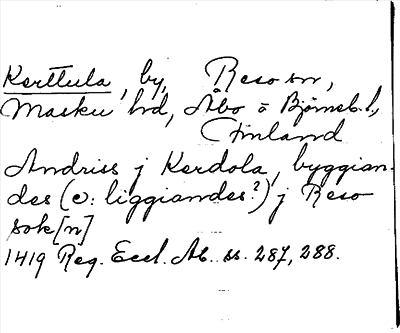 Kerttula, by, Reso sn,
Masku hd, Åbo o Björneb. l.,
Finland
Andriss j Kerdola, byggian-
des (ɔ: liggiandes?) j Reso
sok[n]
1419 Reg. Eccl. Ab. ss. 287, 288.